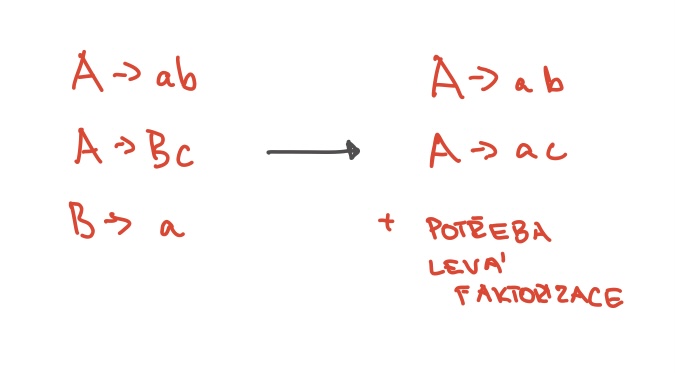 A → ab
A → Bc
B → a
A → ab
A → ac
+ POTŘEBA
LEVÁ
FAKTORIZACE